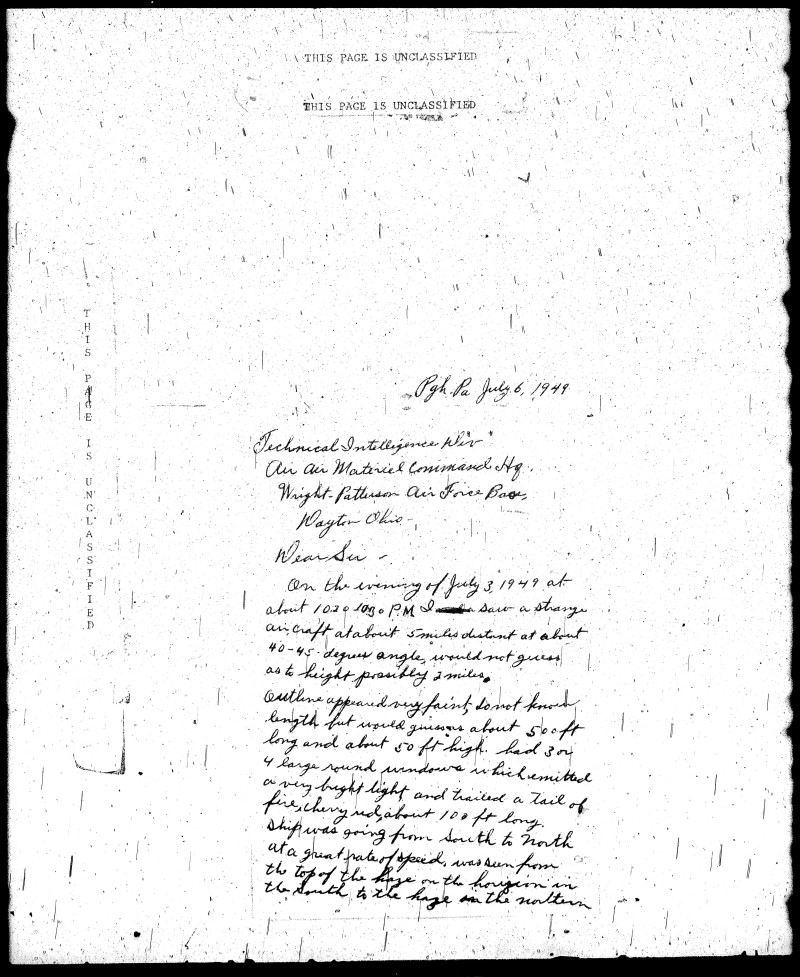 THIS PAGE IS UNCLASSIFIED
THIS PAGE IS UNCLASSIFIED
THIS PAGE IS UNCLASSIFIED
Pgh. Pa July 6, 1949
Technical Intelligence Div
Air Air Materiel Command Hq.
Wright-Patterson Air Force Base,
Dayton Ohio
Dear Sir -
On the evening of July 3, 1949 at
about 1030 P.M I saw a strange
air craft at about 5 miles distant at about
40-45 degrees angle, would not guess
as to height possibly 2 miles.
Outline appeared very faint, do not know
length but would guess as about 500 ft
long and about 50 ft high. had 3 or
4 large round windows which emitted
a very bright light, and trailed a tail of
fire, cherry red, about 100 ft long.
Ship was going from South to North
at a great rate of speed, was seen from
the top of the haze on the horizion in
the South to the haze on the northern